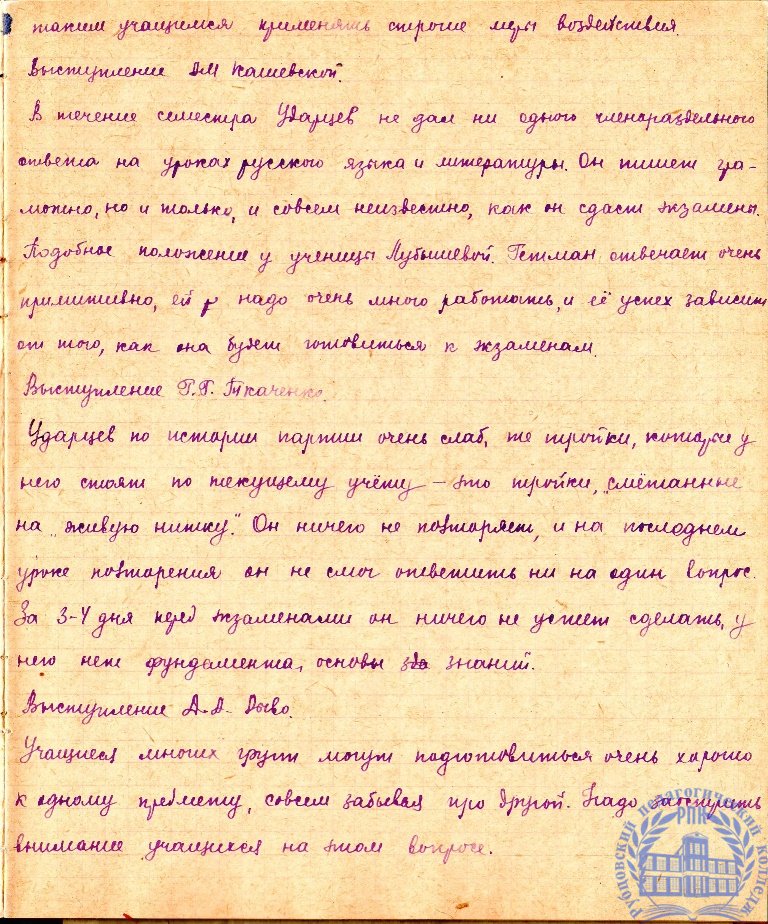 таким учащимся применять строгие меры воздействия.
Выступление ДМ Кашевской.
В течение семестра Ударцев не дал ни одного членораздельного
ответа на уроках русского языка и литературы. Он пишет гра-
мотно, но и только, и совсем неизвестно, как он сдаст экзамены.
Подобное положение у ученицы Лубышевой. Гетман отвечает очень
примитивно, ей надо очень много работать, и её успех зависит
от того, как она будет готовиться к экзаменам.
Выступление Г.Г. Ткаченко.
Ударцев по истории партии очень слаб, те тройки, которые у
него стоят по текущему учёту – это тройки, „смётанные
на „живую нитку". Он ничего не повторяет, и на последнем
уроке повторения он не смог ответить ни на один вопрос.
За 3-4 дня перед экзаменами он ничего не успеет сделать, у
него нет фундамента, основы знаний.
Выступление А.Д.
Учащиеся многих групп могут подготовиться очень хорошо
к одному предмету, совсем забывая про другой. Надо заострить
внимание учащихся на этом вопросе.
Рубцовский педагогический колледж
РПК